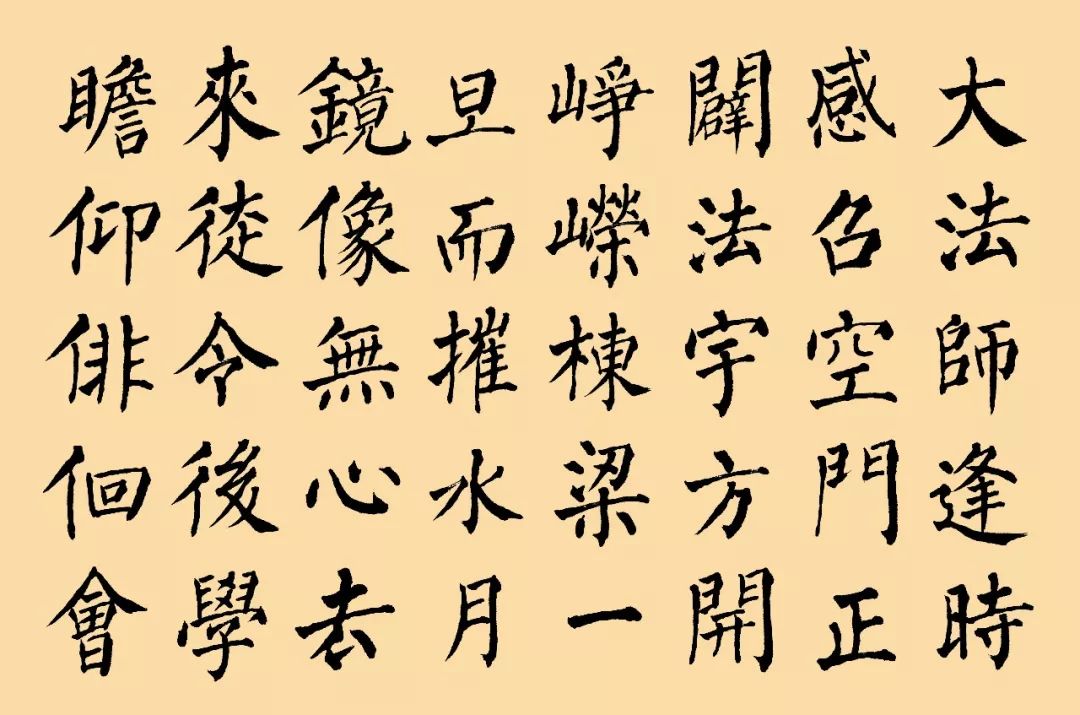 大法師逢時
感召空門正
闢法宇方開
崢嶸棟梁一
旦而摧水月
鏡像無心去
來徒令後學
瞻仰俳佪會